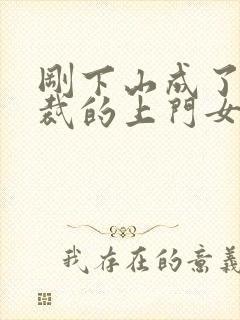 剛下山成了
裁的上門女
我存在的意義